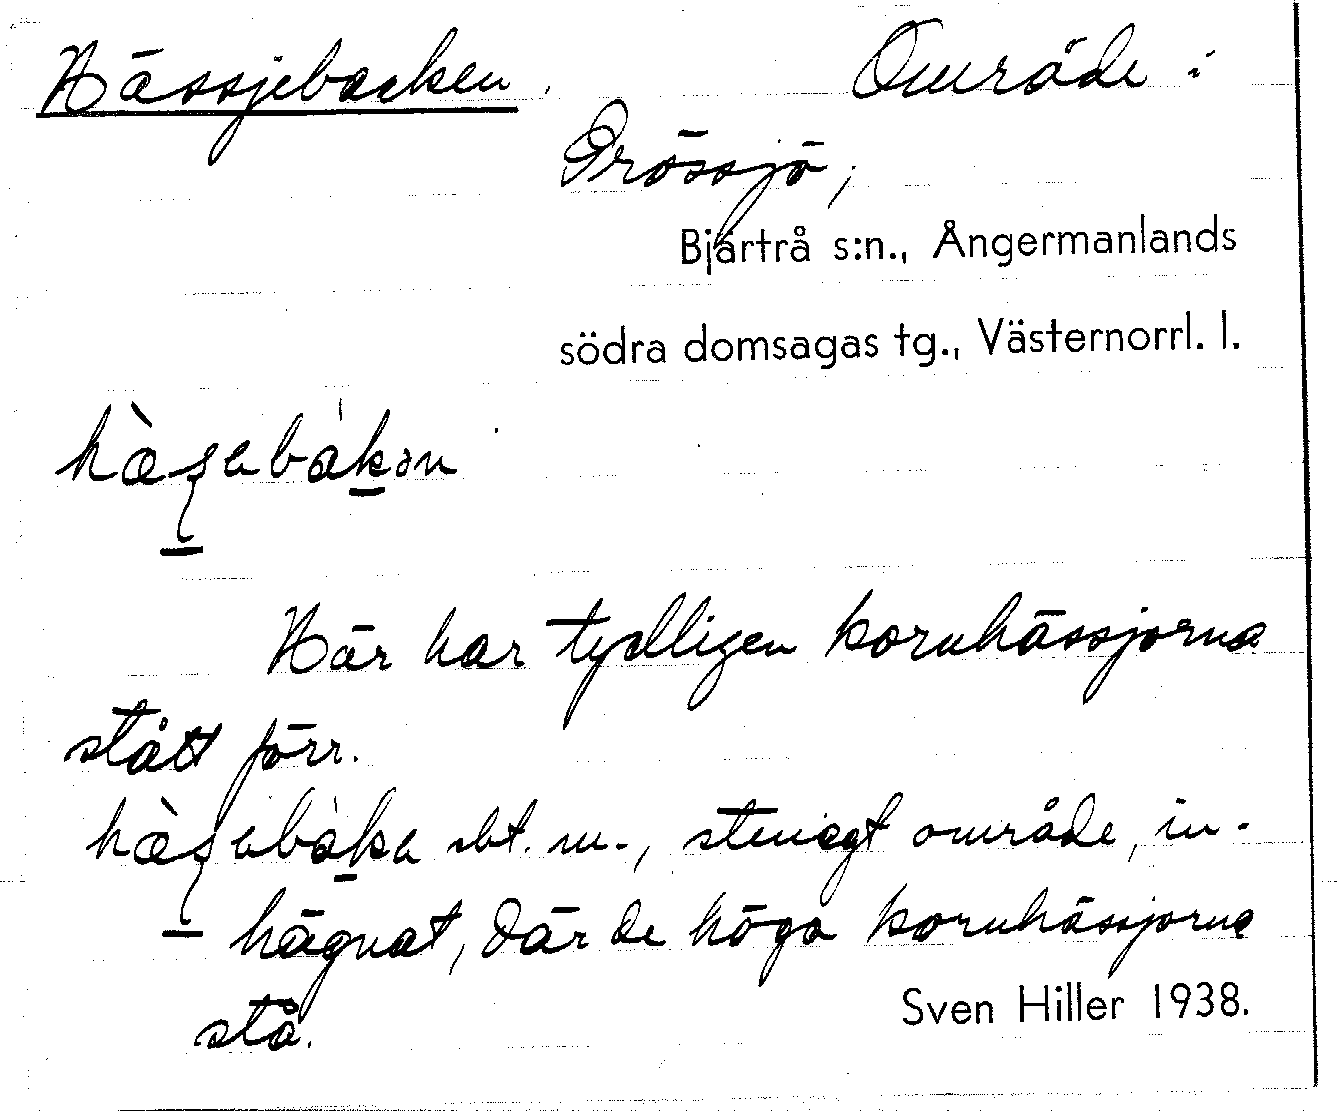 Hässjebacken. Område i
Prössjö,
Bjärtrå s:n., Ångermanlands
södra domsagas tg., Västernorrl. l.
hæ̀ʂebákən
Här har tydligen kornhässjorna
stått förr.
hæ̀ʂebákɑ sbt. m., stenigt område, in-
hägnat, där de höga kornhässjorna
stå.
Sven Hiller 1938.